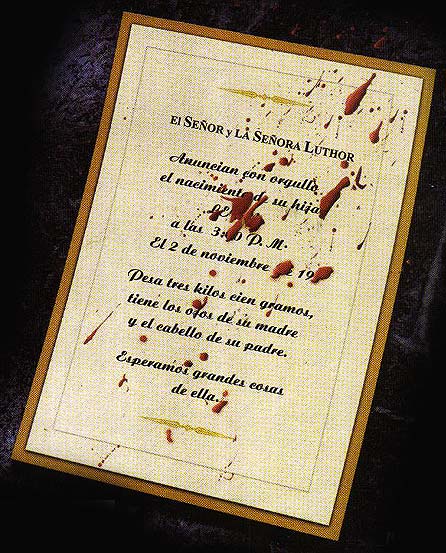 El SEÑOR y LA SEÑORA LUTHOR
Anuncian con orgullo
el nacimiento de su hija
a las P. M.
El 2 de noviembre
Pesa tres kilos cien gramos,
tiene los ojos de su madre
y el cabello de su padre.
Esperamos grandes cosas
de ella.